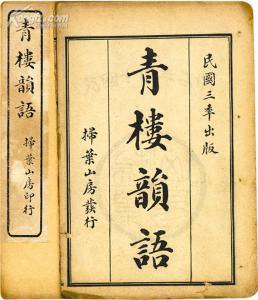 民國三年出版
青樓韻語
掃葉山房發行
青樓韻語
掃葉山房印行